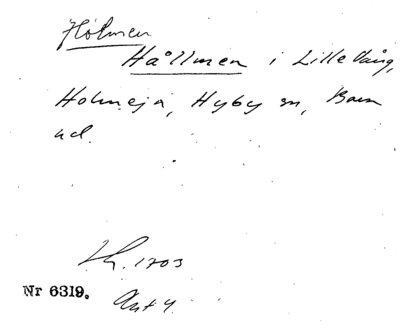 Holmen
Hållmen i Lille Vång,
Holmeja, Hyby sn, Bara
hd.
Lh. 1703
Nr 6319.
Akt 4.